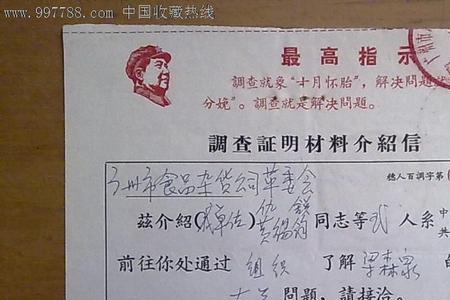 www.997788.com 中国收藏热线
最高指示
調查就象“十月怀胎”，解决問題就
分娩”。調查就是解决問題。
調查証明材料介紹信
广州市食品杂货公司革委会
穗人百調字第
茲介紹(我单位) 仇 黄锡 同志等 弍 人系 中共
前往你处通过 組织 了解 梁森泉 的
問題，請接洽。